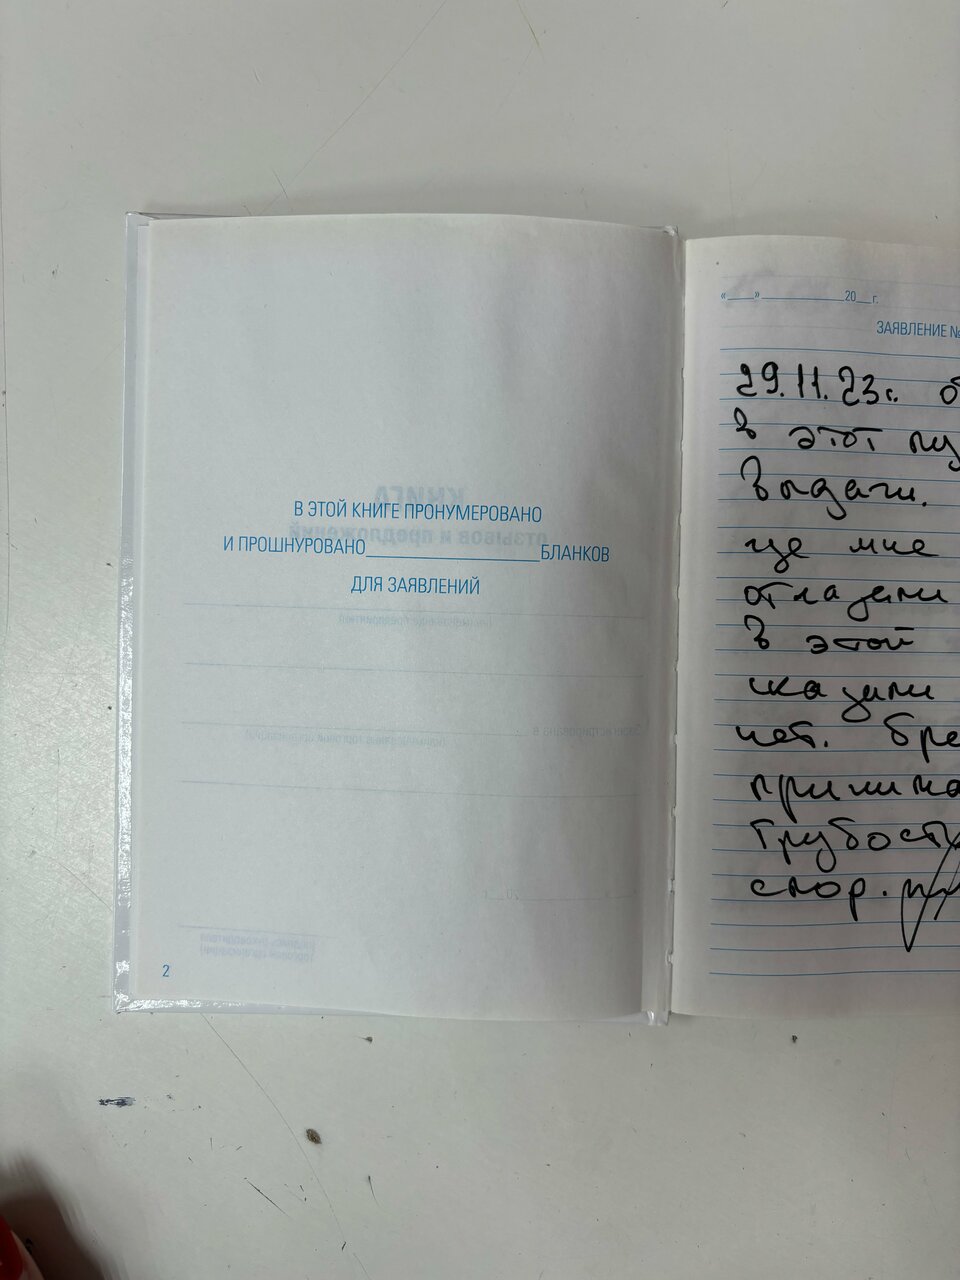 В ЭТОЙ КНИГЕ ПРОНУМЕРОВАНО
И ПРОШНУРОВАНО_________________БЛАНКОВ
ДЛЯ ЗАЯВЛЕНИЙ
2
«____»____________20__г.
ЗАЯВЛЕНИЕ №
29.11.23г. об
в этот пу
выдачи.
где мне
отказали
в этой
сказали
нет. бре
принима
Грубость